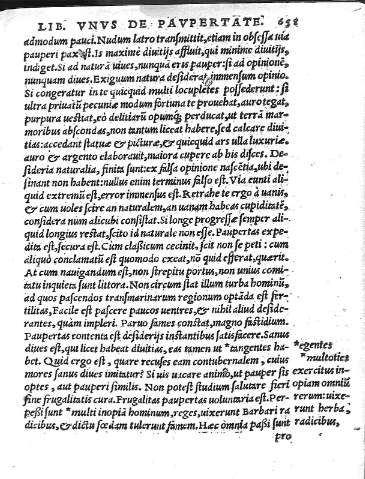 LIB. VNVS DE PAVPERTATE. 658
admodum pauci. Nudum latro transmittit, etiam in obsessa uia
pauperi pax est. Is maxime diuitijs affluit, qui minime diuitijs,
indiget. Si ad naturã uiues, nunquã eris pauper: si ad opinionẽ,
nunquam diues. Exiguum natura desiderat, immensum opinio.
Si congeratur in te quicquid multi locupletes possederunt: si
ultra priuatũ pecuniæ modum fortuna te prouehat, auro tegat,
purpura uestiat, eò delitiarũ opumq; perducat, ut terrã mar-
moribus abscondas, non tantum liceat habere, sed calcare diui-
tias: accedant statuæ & picturæ, & quicquid ars ulla luxuriæ,
auro & argento elaborauit, maiora cupere ab his disces. De-
sideria naturalia, finita sunt: ex falsa opinione nascẽtia, ubi de-
sinant non habent: nullus enim terminus falso est. Via eunti ali-
quid extremũ est, error immensus est. Retrahe te ergo à uanis,
& cum uoles scire an naturalem, an uanam habeas cupiditatẽ,
considera num alicubi consistat. Si longe progressæ semper ali-
quid longius restat, scito id naturale non esse. Paupertas expe-
dita est, secura est. Cum classicum cecinit, scit non se peti: cum
aliquò conclamatũ est quomodo exeat, nõ quid efferat, quærit.
At cum nauigandum est, non strepitu portus, non unius comi-
tatu inquieta sunt littora. Non circum stat illum turba hominũ,
ad quos pascendos transmarinarum regionum optãda est fer-
tilitas, Facile est pascere paucos uentres, & nihil aliud deside-
rantes, quàm impleri. Paruo fames constat, magno fastidium.
Paupertas contenta est desiderijs instantibus satisfacere. Sanus
diues est, qui licet habeat diuitias, eas tamen ut *tangentes ha-
bet. Quid ergo est, quare recuses eam contubernalem, cuius
mores sanus diues imitatur? Si uis uacare animo, ut pauper sis
optes, aut pauperi similis. Non potest studium salutare fieri
sine frugalitatis cura. Frugalitas paupertas uoluntaria est. Per-
pessi sunt *multi inopiã hominum, reges, uixerunt Barbari ra
dicibus, & dictu fœdam tulerunt famem. Hæc omnia passi sunt
pro
*egentes
*multoties
exercitus in-
opiam omniũ
rerum: uixe-
runt herba,
radicibus,